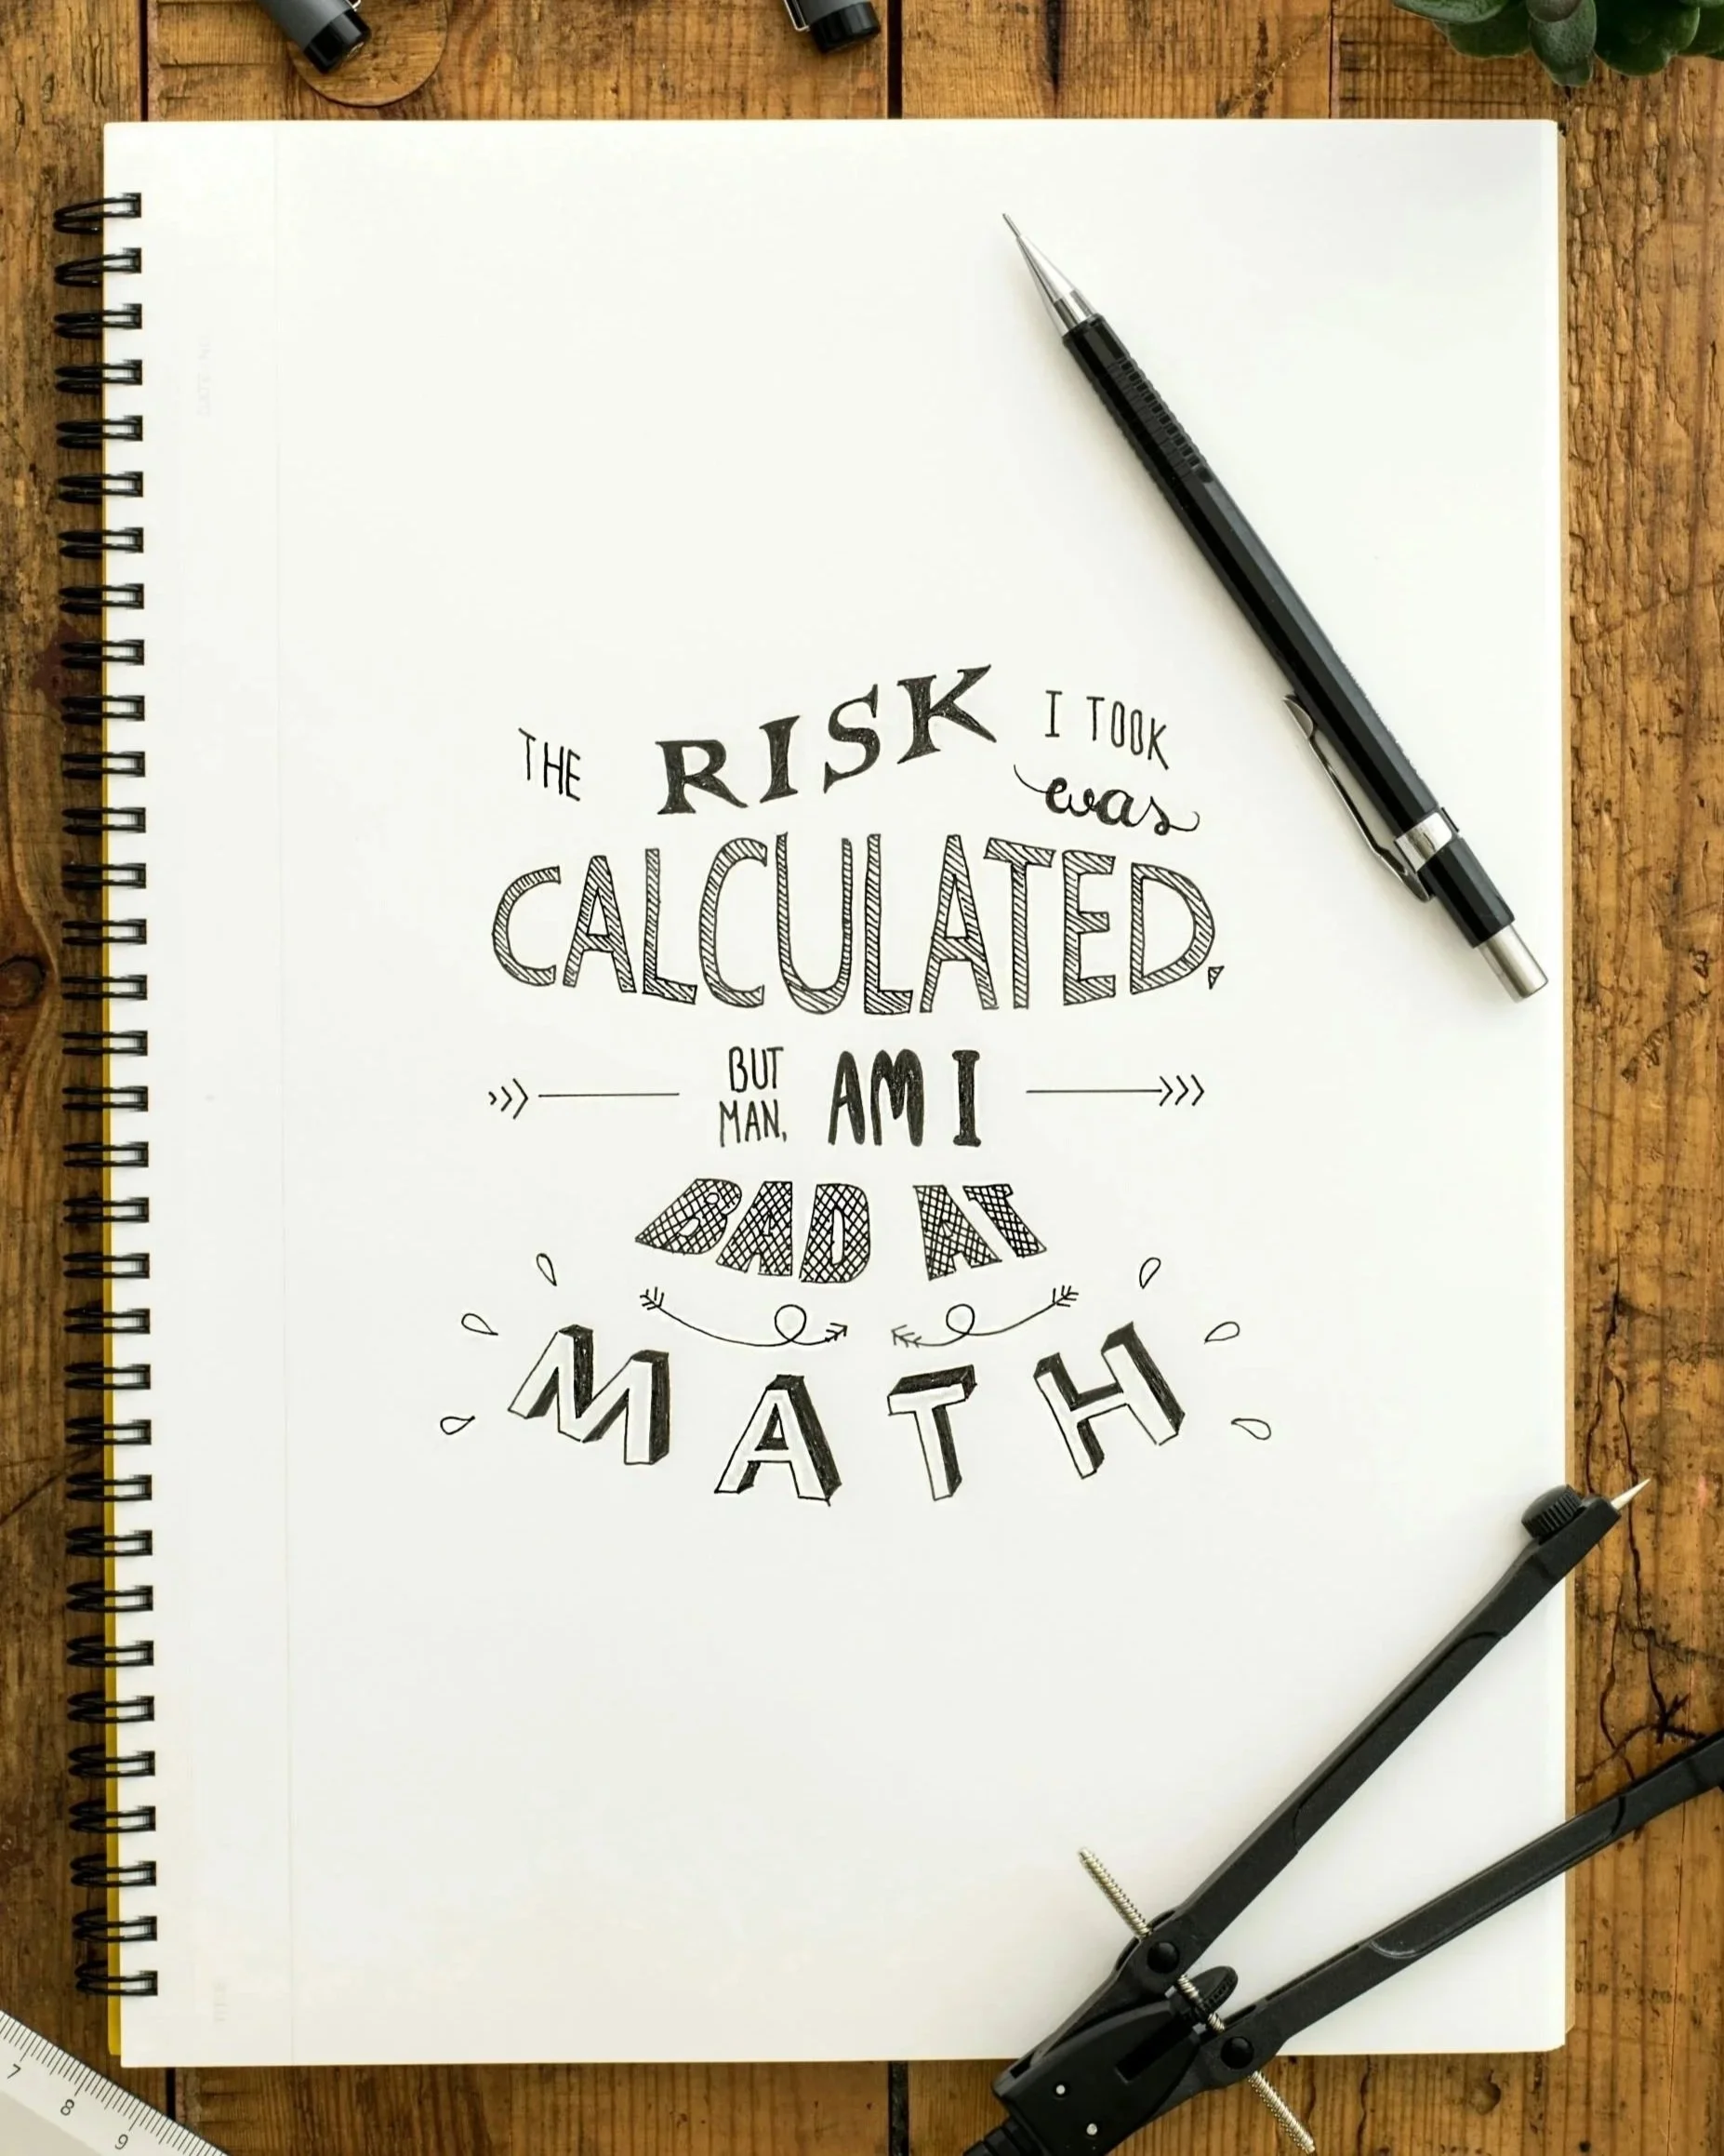 THE RISK I TOOK
was
CALCULATED,
BUT
MAN, AM I
BAD AT
MATH
7
8
9